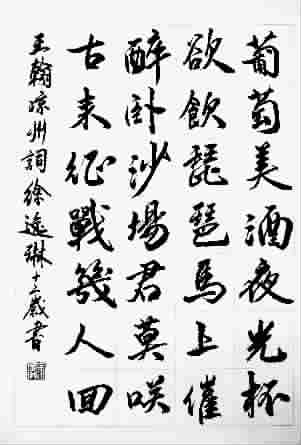 葡萄美酒夜光杯
欲飲琵琶馬上催
醉卧沙場君莫咲
古来征戰幾人回
王翰凉州詞徐逸琳十三歲書